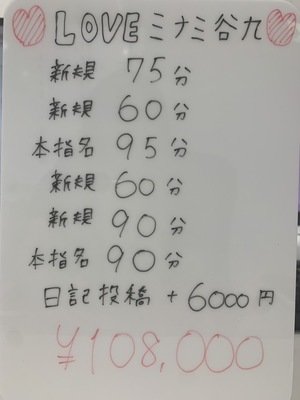 ♡LOVEミナミ谷九♡
新規 75分
新規 60分
本指名 95分
新規 60分
新規 90分
本指名 90分
日記投稿 + 6000円
¥108,000